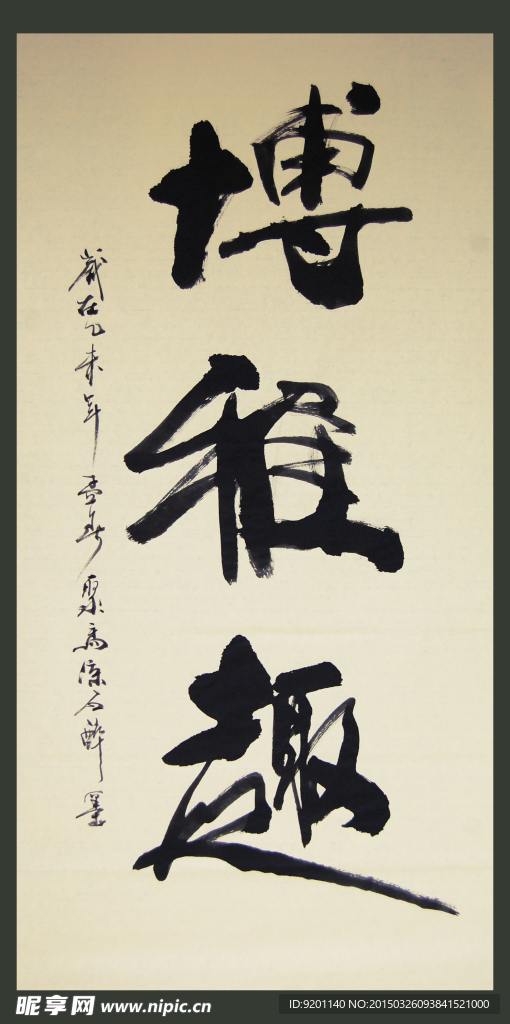 博雅趣
歲在乙未年孟春聚高
醉墨
昵享网 www.nipic.cn
ID:9201140 NO:20150326093841521000